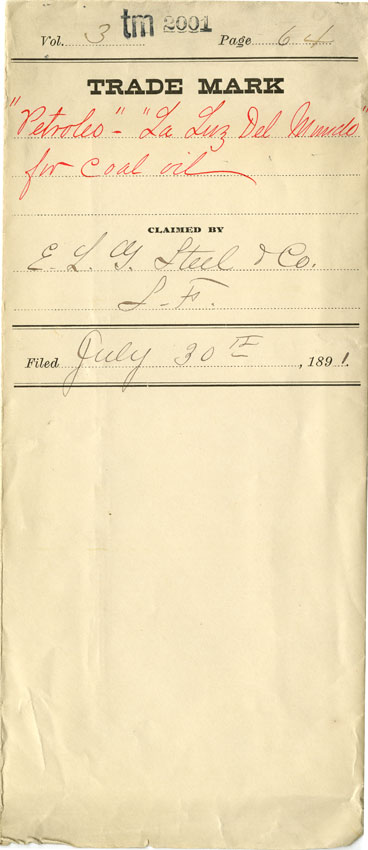 Vol. 3 tm 2001 Page 64
TRADE MARK
"Petroleo" - "La Luz Del Mundo"
for coal oil
CLAIMED BY
E. L. G. Steel & Co.
S. F.
Filed July 30th, 1891.